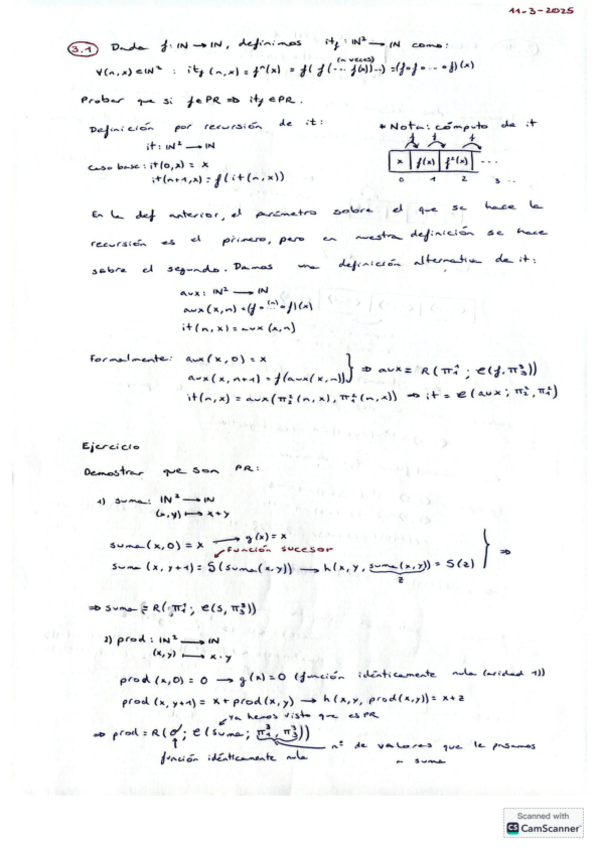 11-3-2025
3.1 Dada f: ℕ → ℕ, definimos it_f: ℕ² → ℕ como:
∀(n,x) ∈ ℕ² : it_f(n,x) = fⁿ(x) = f(f(... f(x))...) = (f∘f∘...∘f)(x)
(n veces)
Probar que si f ∈ PR ⇒ it_f ∈ PR.
Definición por recursión de it:
it: ℕ² → ℕ
Caso base: it(0,x) = x
it(n+1,x) = f(it(n,x))
* Nota: cómputo de it
f f f
x | f(x) | f²(x) | ...
0 1 2 3 ...
En la def anterior, el parámetro sobre el que se hace la
recursión es el primero, pero en nuestra definición se hace
sobre el segundo. Damos una definición alternativa de it:
aux: ℕ² → ℕ
aux(x,n) = (f∘ ⁽ⁿ⁾ ∘f)(x)
it(n,x) = aux(x,n)
Formalmente: aux(x,0) = x
aux(x,n+1) = f(aux(x,n)) } ⇒ aux = R(π₁¹; C(f,π₃³))
it(n,x) = aux(π₂²(n,x), π₁²(n,x)) ⇒ it = C(aux; π₂², π₁²)
Ejercicio
Demostrar que son PR:
1) suma: ℕ² → ℕ
(x,y) ↦ x+y
suma(x,0) = x → g(x) = x
función sucesor
suma(x,y+1) = S(suma(x,y)) → h(x,y,suma(x,y)) = S(z) } ⇒
z
⇒ suma = R(π₁¹; C(S,π₃³))
2) prod: ℕ² → ℕ
(x,y) ↦ x·y
prod(x,0) = 0 → g(x) = 0 (función idénticamente nula (aridad 1))
prod(x,y+1) = x + prod(x,y) → h(x,y,prod(x,y)) = x+z
ya hemos visto que es PR
⇒ prod = R(O; C(suma; π₁³, π₃³))
nº de valores que le pasamos
a suma
función idénticamente nula
Scanned with
CS CamScanner